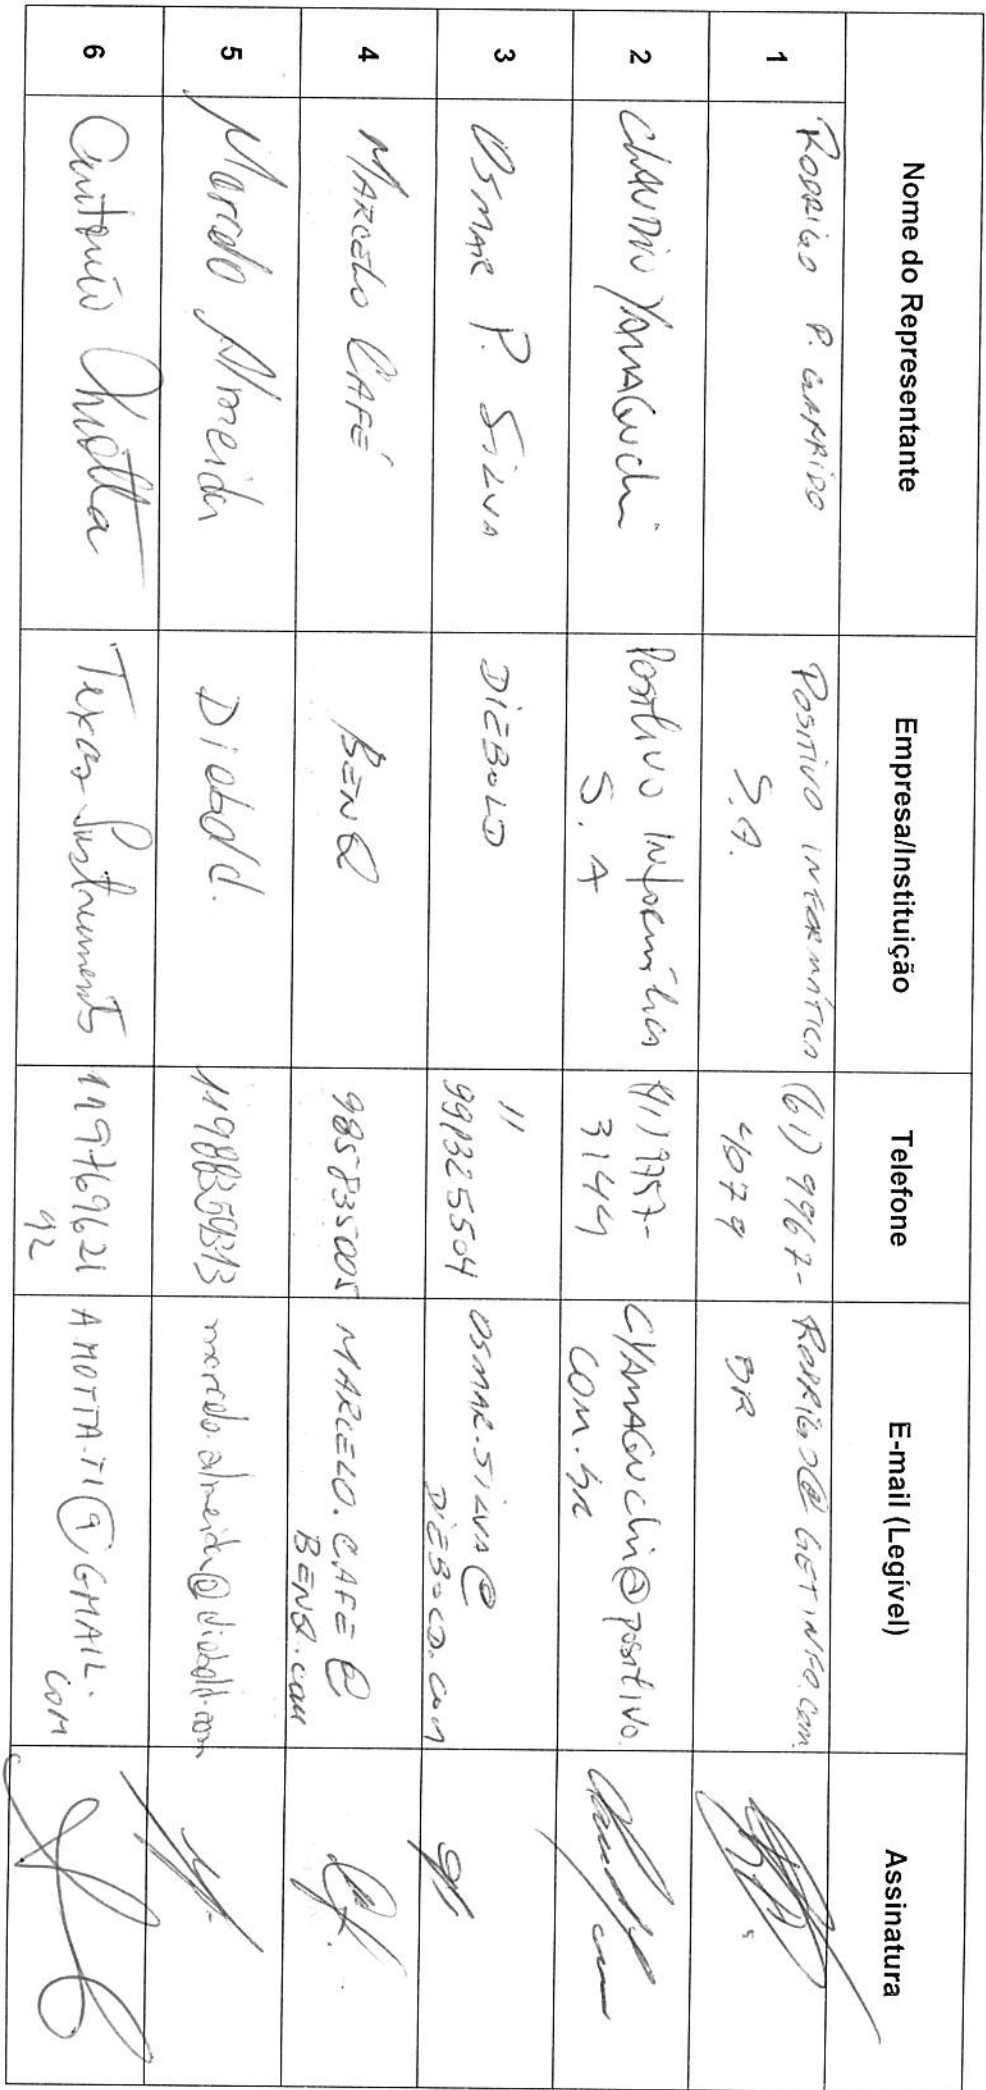 Nome do Representante Empresa/Instituição Telefone E-mail (Legível) Assinatura
1 RODRIGO P. GARRIDO POSITIVO INFORMÁTICA S.A. (61) 9967-4079 RODRIGO@GETINFO.COM.BR
2 CLAUDIO YAMAGUCHI POSITIVO INFORMÁTICA S.A 3144 CYAMAGUCHI@POSITIVO.COM.BR
3 OSMAR P. SILVA DIEBOLD 11 OSMAR.SILVA@DIEBOLD.COM
4 MARCELO CAFÉ BENQ 985835005 MARCELO.CAFE@BENQ.COM
5 Marcelo Almeida Diebold. marcelo.almeida@diebold.com
6 Antonio Motta Texas Instruments 11976962192 AMOTTA.TI@GMAIL.COM